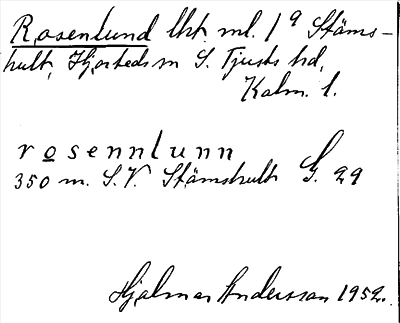 Rosenlund lht. ml. 1ª Stäms-
hult, Hjorteds sn S. Tjusts hd,
Kalm. l.
rosennlunn
350 m. S.V. Stämshult G. 29
Hjalmar Andersson 1952.